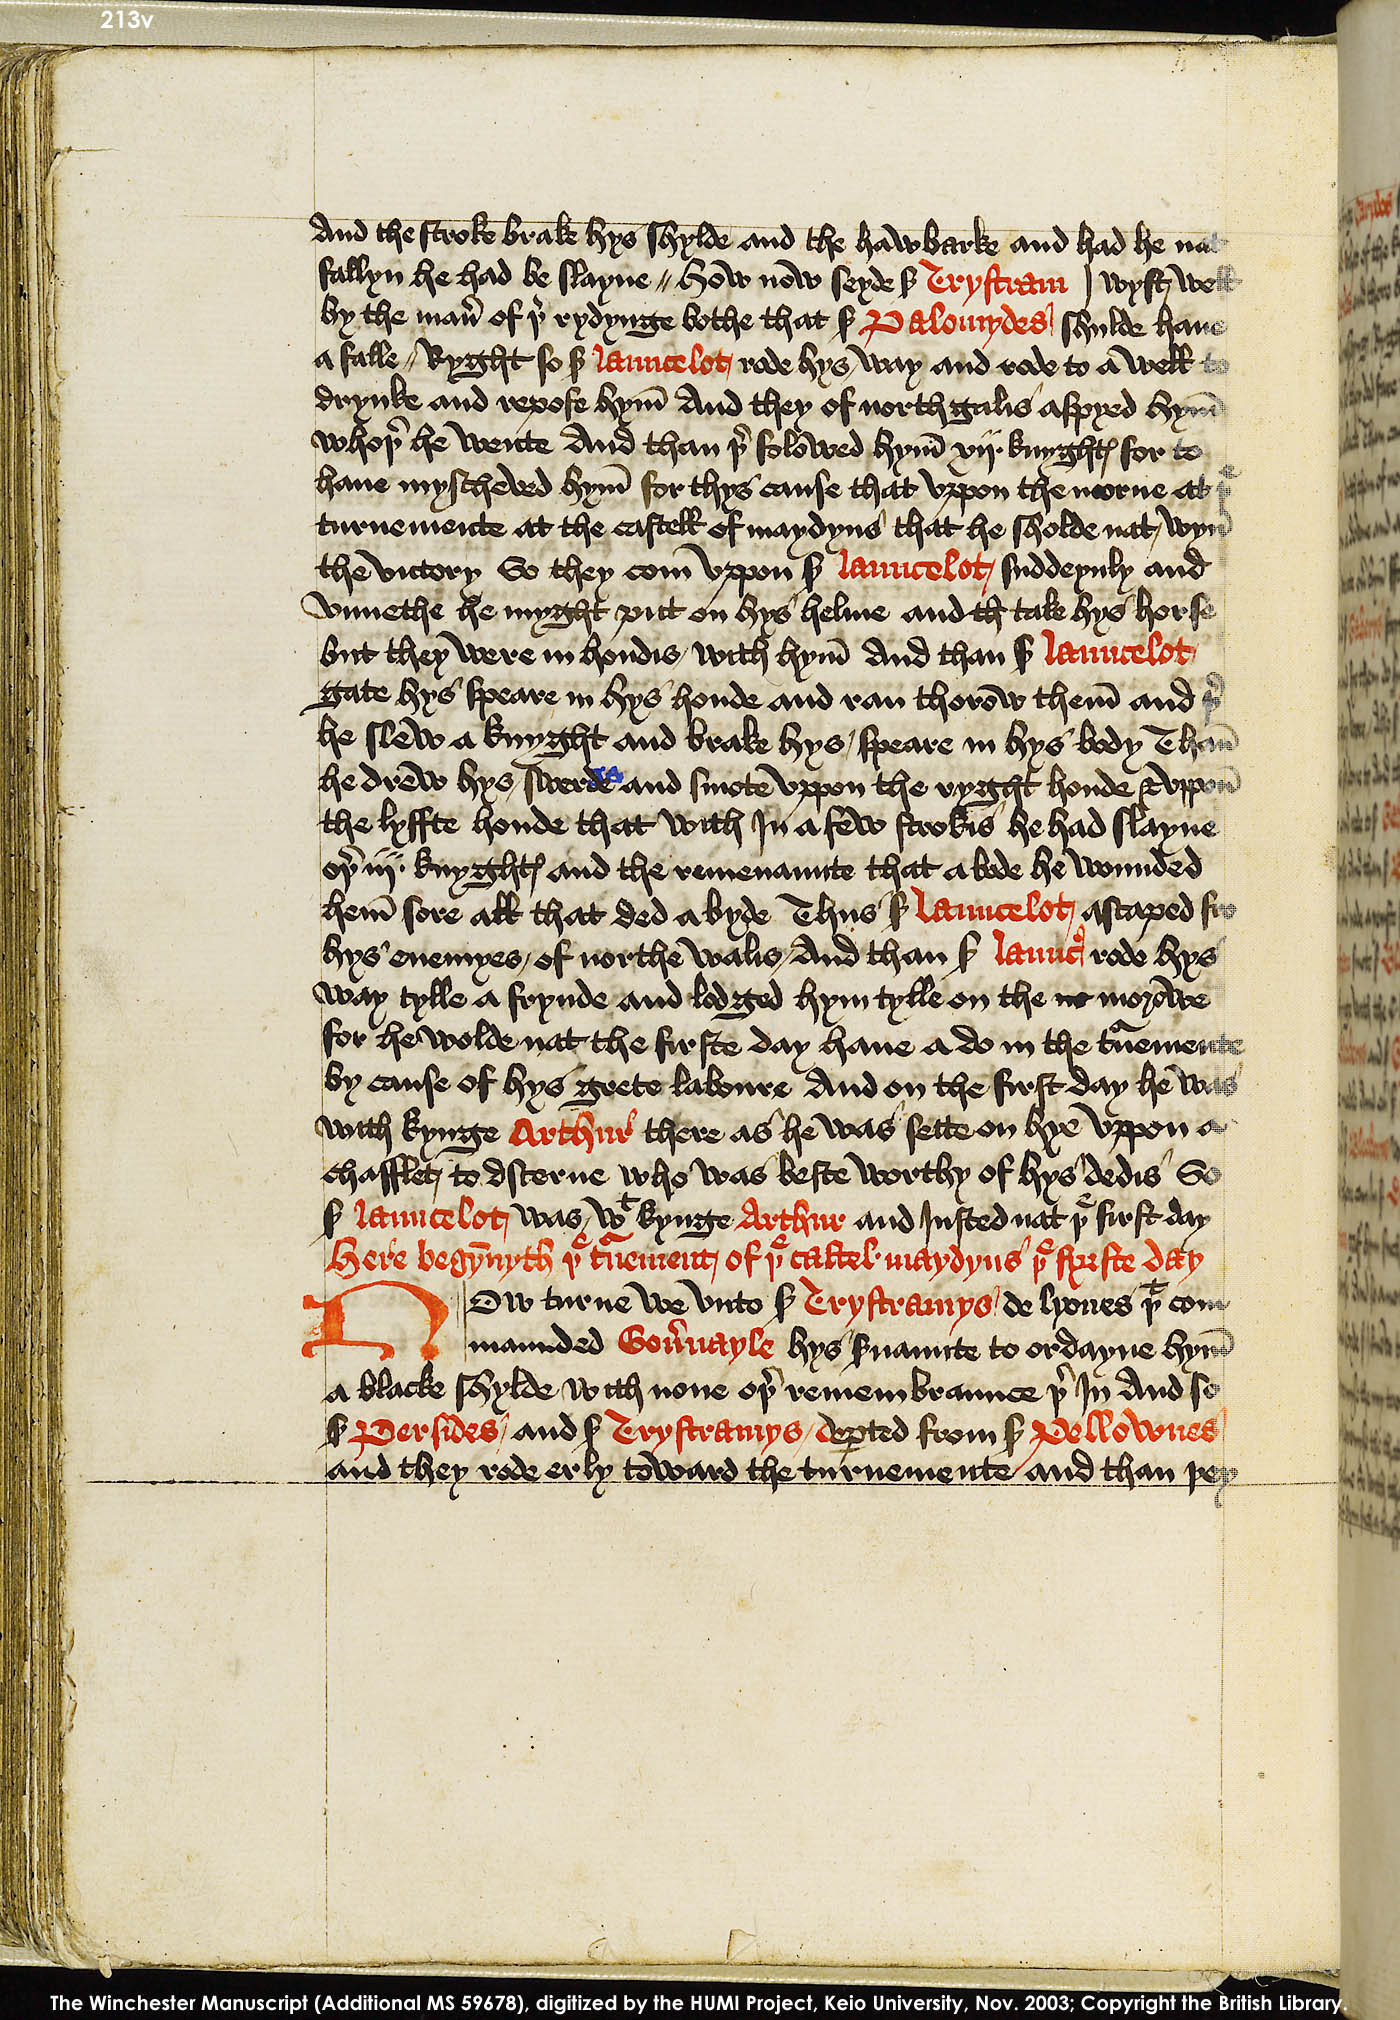 213v
And the stroke brake hys shylde and the hawbarke and had he nat
fallyn he had be slayne // How now seyde sʳ Trystram I wyst well
by the man̄ of þʳ rydynge bothe that sʳ Palomydes shulde haue
a falle // Ryght so sʳ launcelot rode hys way and rode to a well to
drynke and repose hym̄ And they of north galis aspyed hym̄
whoþʳ he wente And than þʳ folowed hym̄ xij. knyghtꝭ for to
haue myscheved hym̄ for thys cause that vppon the morne at þᵉ
turnemente at the castell of maydyns that he sholde nat wyn̄
the victory So they com vppon sʳ launcelot suddeynly and
vnnethe he myght put on hys helme and th take hys horse
but they were in hondis with hym̄ And than sʳ launcelot
gate hys speare in hys honde and ran thorow them̄ and þʳ
he slew a knyght and brake hys speare in hys body Than̄
he drew hys swerde and smote vppon the ryght honde & vppon̄
the lyffte honde that with In a few strokis he had slayne
oþʳ iij. knyghtꝭ and the remenaunte that abode he wounded
hem̄ sore all that ded abyde Thus sʳ launcelot ascaped fro
hys enemyes of northe walis And than sʳ launcʳ rode hys
way tylle a frynde and lodged hym tylle on the mo morowe
for he wolde nat the firste day haue ado in the tᵘnemente
by cause of hys grete laboure And on the first day he was
with kynge Arthur there as he was sette on hye vppon a
chafflet to dscerne who was beste worthy of hys dedis So
sʳ launcelot was wᵗ kynge Arthur and Iusted nat þᵉ first day
Here begyn̄nyth þᵉ tᵘnement of þᵉ castel. maydyns þᵉ fyrste day
NOw turne we vnto sʳ Trystramys de lyones þᵗ com
maunded Gou̾nayle hys sʳuaunte to ordayne hym̄
a blacke shylde with none oþʳ remembraunce þʳ In And so
sʳ Persides and sʳ Trystramys deꝑted from sʳ Pellownes
and they rode erly toward the turnemente and than þey
The Winchester Manuscript (Additional MS 59678), digitized by the HUMI Project, Keio University, Nov. 2003; Copyright the British Library.